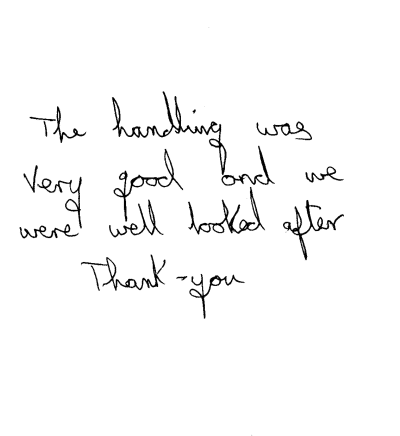 The handling was
Very good and we
were well looked after
Thank-you